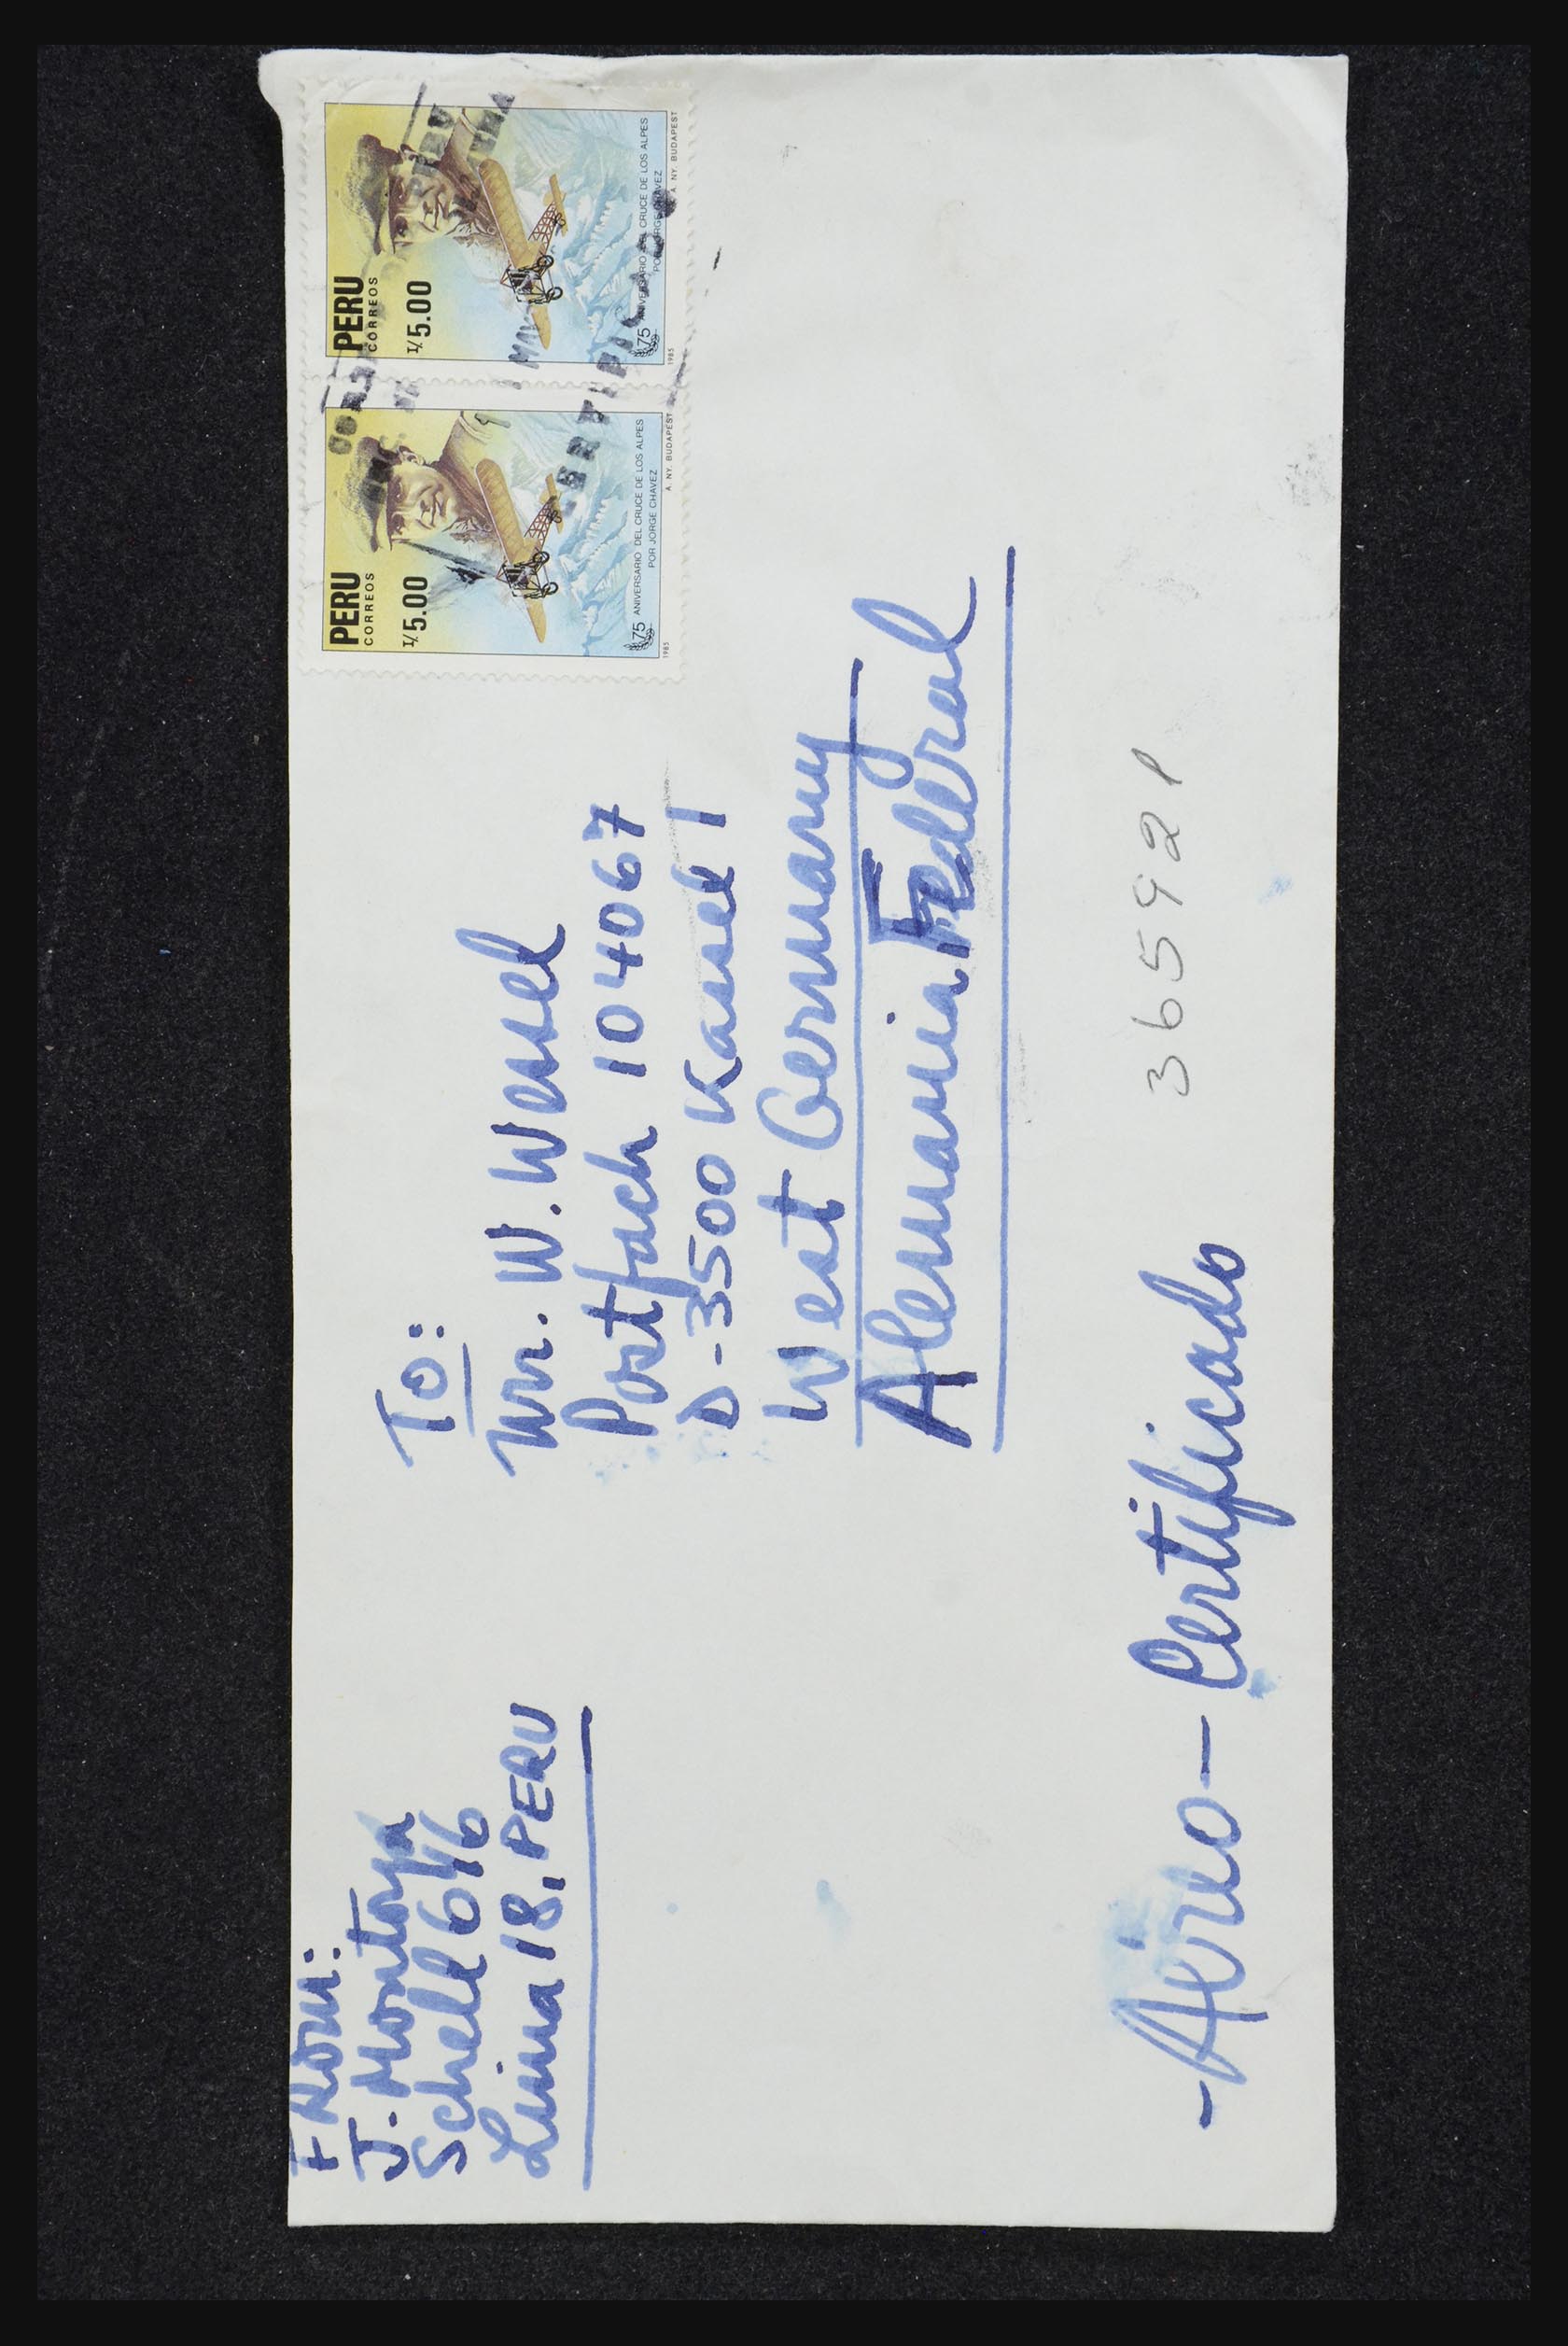 From:
J. Montoya
Schell 616
Lima 18, PERU
PERU
CORREOS
I/5.00
75 ANIVERSARIO DEL CRUCE DE LOS ALPES
POR JORGE CHAVEZ
1985 A. NY. BUDAPEST
PERU
CORREOS
I/5.00
75 ANIVERSARIO DEL CRUCE DE LOS ALPES
POR JORGE CHAVEZ
1985 A. NY. BUDAPEST
To:
Mr. W. Wessel
Postfach 104067
D-3500 Kassel 1
West Germany
Alemania Federal
365921
- Aéreo - Certificado